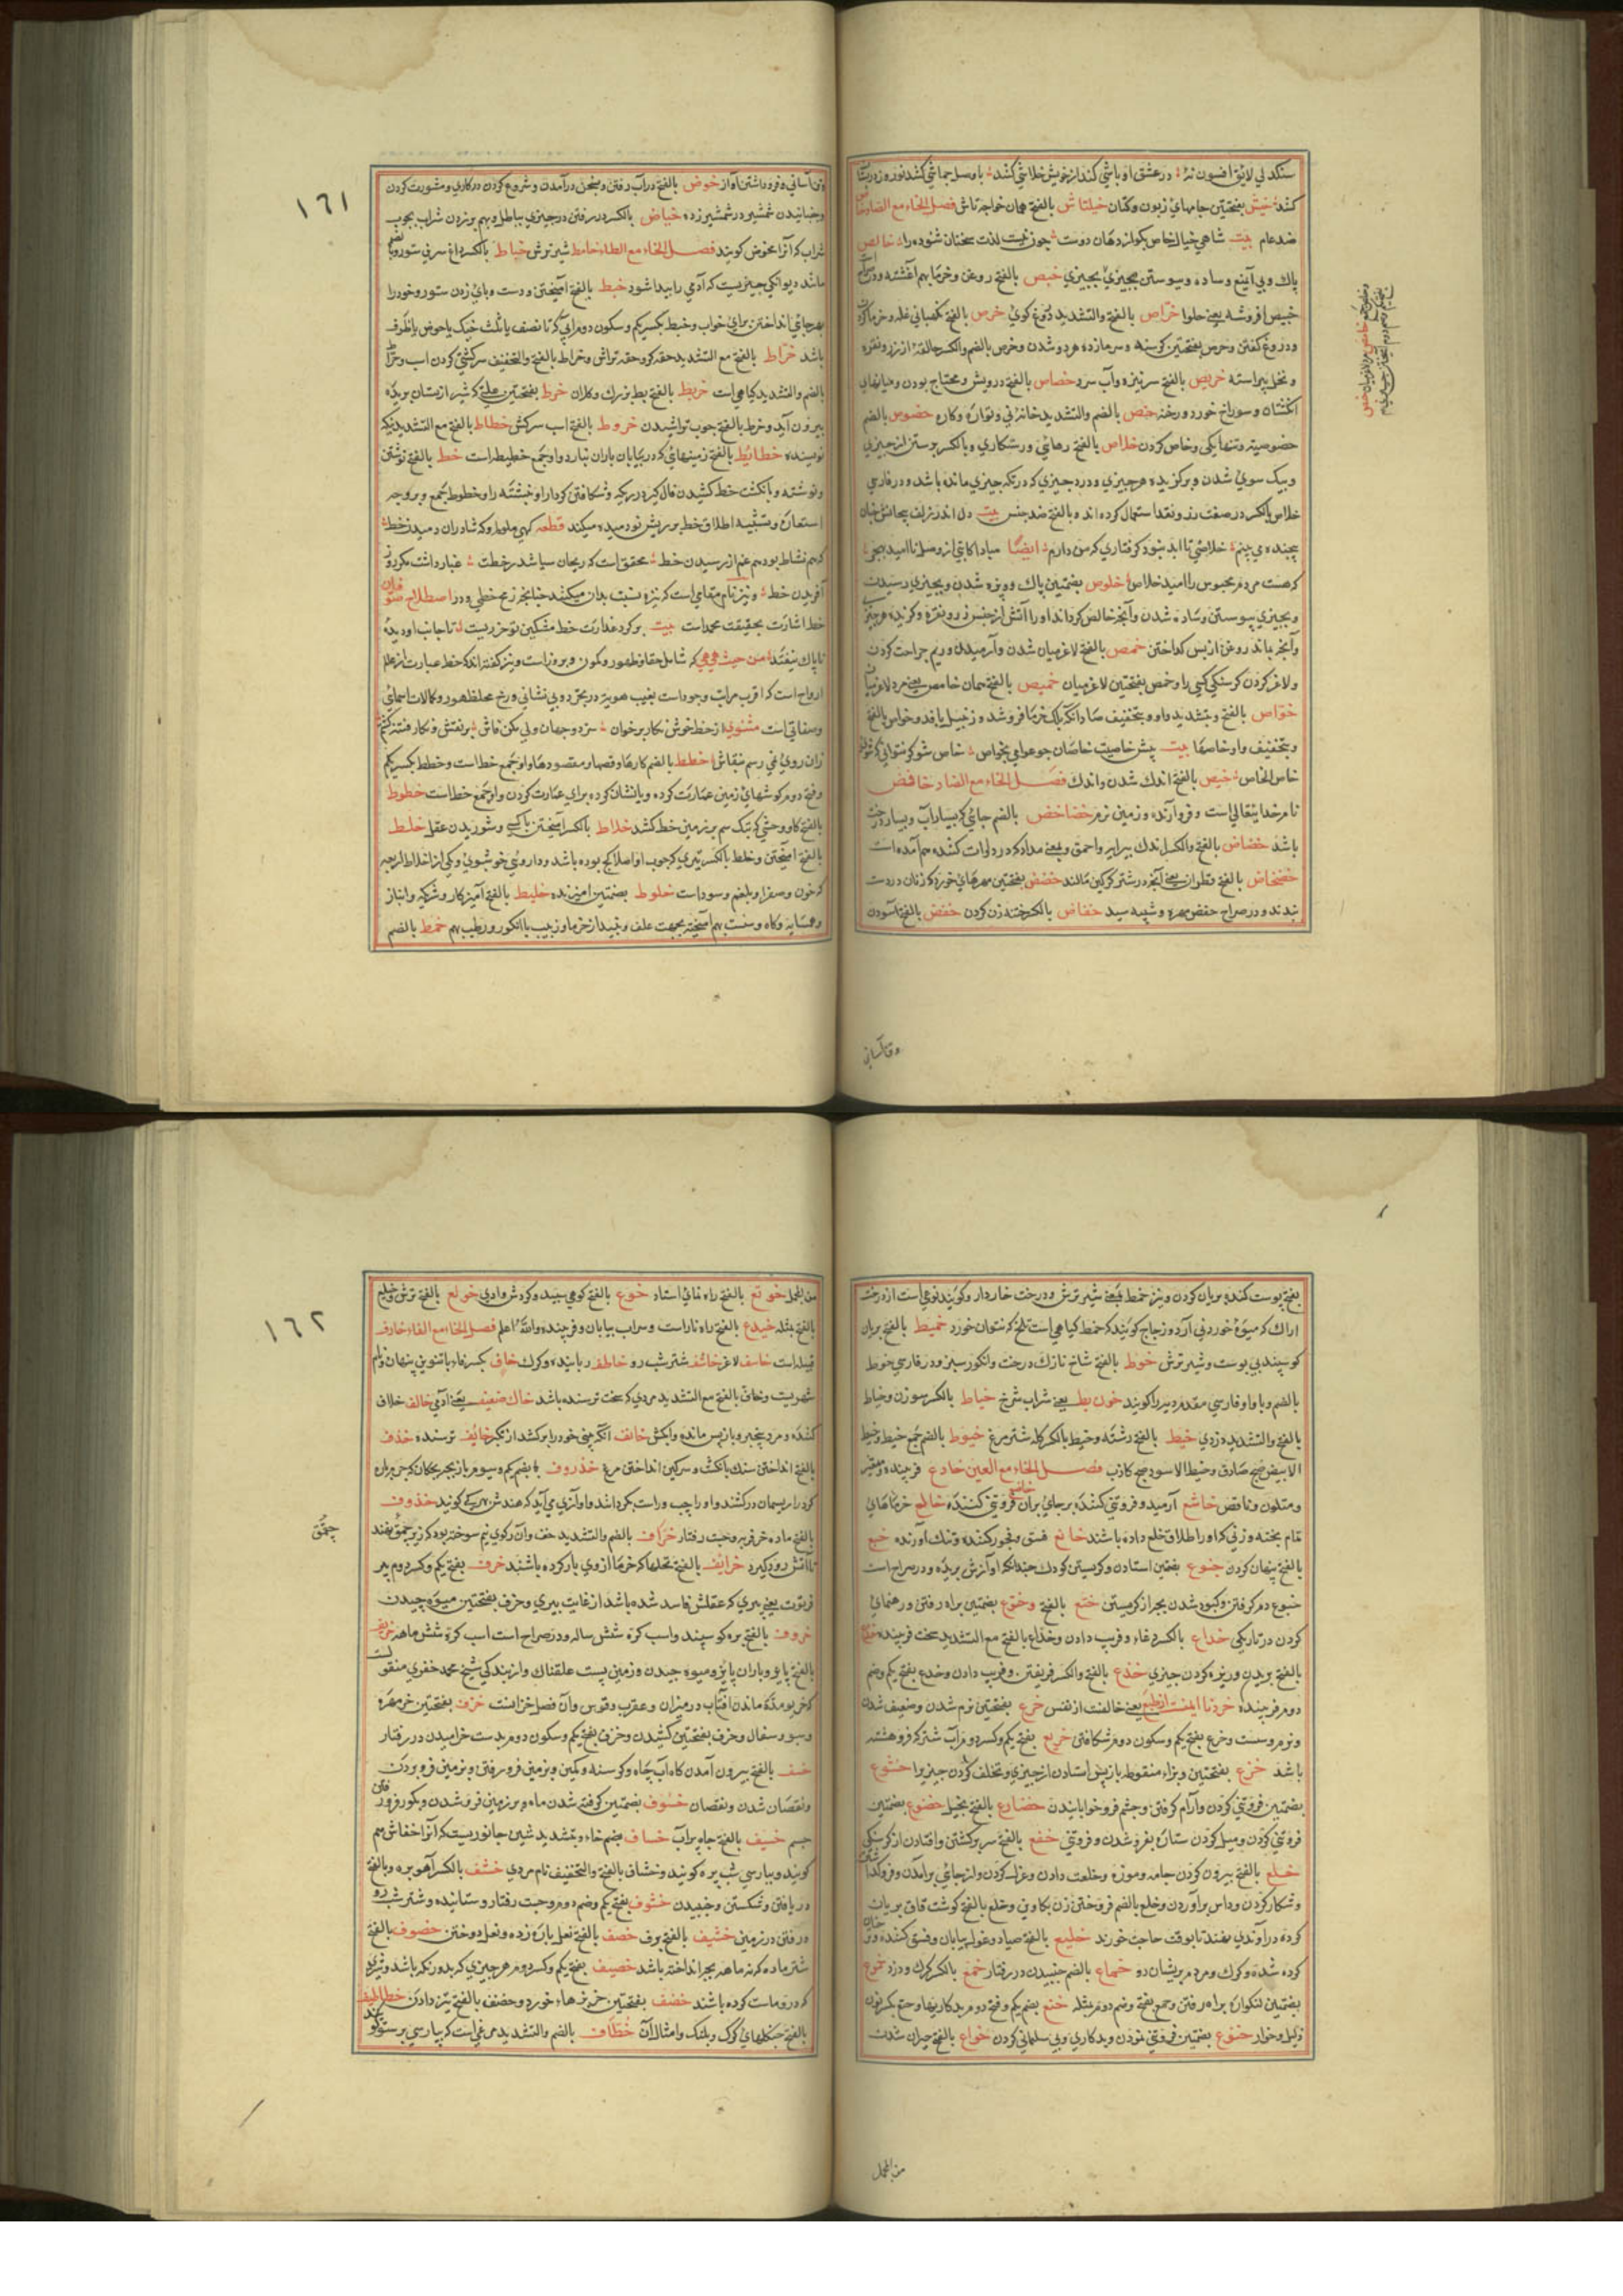 سنکدلی لایق افسون نه در عشق او باشی کند از خویش خلاشی کشد با وصل جماشی کشد
کشد خیش بفتحتین جامهای زبون وکتان خیلتاش بالفتح همان خواجه تاش فصل الخاء مع الصاد خاص
ضد عام بیت شاهی خیال خاص بکو از دهان دوست چون نیست لذت سخنان شنوده را خالص
پاک وبی آمیغ وساده وپیوستن بچیزی خبص بالفتح روغن وخرما بهم آغشته
خبیص افروشه یعنی حلوا خراص بالفتح والتشدید دروغ کوی خرص بالفتح
ودروغ کفتن وخرص بفتحتین کرسنه وسرمازده شدن وخرص بالضم والکسر حلقه از زر ونقره
ونخل پیراسته خریص بالفتح سر نیزه وآب سرد خصاص بالفتح درویش ومحتاج بودن ومیانهای
انکشتان وسوراخ خورد ورخنه خص بالضم والتشدید خانه نی خصوص بالضم
خصوصیة وتنهایکی وخاص کردن خلاص بالفتح رهائی ورستکاری وبالکسر
وبیک سوی شدن وبرکزیده هر چیزی ودرد چیزی که در ته چیزی مانده باشد ودر فارسی
خلاص بالکسر در صفت زر ونقد استعمال کرده اند وبالفتح ضد حبس بیت دل اندر زلف
خلاصی تا ابد نبود کرفتاری که من دارم ایضا مبادا از وصل ناامید
که هست مردم محبوس را امید خلاص خلوص بضمتین پاک وویژه شدن وبچیزی رسیدن
وبچیزی پیوستن وساده شدن وآنچه خالص کرداند او را آتش از جنس زر ونقره
وآنچه بماند روغن از پس کداختن خمص بالفتح لاغر میان شدن وآرمیدن ورم جراحت کردن
ولاغر کردن کرسنکی کسی را وخمص بفتحتین لاغر میان خمیص بالفتح همان خامص یعنی مرد لاغر میان
خواص بالفتح وبتشدید واو وبتخفیف صاد آنکه برک خرما فروشد وزنبیل بافد وخواص بالفتح
وبتخفیف واو خاصها بیت پیش خاصیت خاصان چو عوامی بخواص خاص شو
خاص الخاص خیص بالفتح اندک شدن واندک فصل الخاء مع الضاد خافض
نام خدایتعالی است وفرود آرنده وزمین نرم خضاخض بالضم جائی که بسیار آب وبسیار درخت
باشد خضاض بالفتح والکسر اندک پیرایه واحمق وبمعنی مداد که در دوات کنند هم آمده است
خضخاض بالفتح قطران یعنی آنچه در شتر کرکین مالند خضض بفتحتین مهرهای خورد که زنان در دست
بندند ودر صراح خضض مهره وشیشه سپید خفاض بالکسر ختنه زن کردن خفض بالفتح تن آسودن
وتن آسانی
١٦١
وتن آسانی وفرو داشتن آواز خوض بالفتح در آب رفتن وبسخن درآمدن وشروع کردن در کاری ومشورت کردن
وجنبانیدن شمشیر در شمشیر زده خیاض بالکسر در رفتن در چیزی بباطل وبهم بر زدن شراب بچوب
شراب که آنرا مخوض کویند فصل الخاء مع الطاء خامط شیر ترش خباط بالکسر داغ سرین ستور وبالضم
مانند دیوانکی چیزیست که آدمی را پیدا شود خبط بالفتح آمیختن ودست وپای زدن ستور وخود را
بهر جائی انداختن برای خواب وخبط بکسر یکم وسکون دوم آبی که تا نصف یا ثلث خیک یا حوض یا ظرف
باشد خراط بالفتح مع التشدید حقه کر وحقه تراش وخراط بالفتح والتخفیف سرکشی کردن اسب
بالضم والتشدید کیاهی است خریط بالفتح بط بزرک وکلان خرط بفتحتین علتی که شیر از پستان بریده
بیرون آید وخرط بالفتح چوب تراشیدن خروط بالفتح اسب سرکش خطاط بالفتح مع التشدید نیک
نویسنده خطائط بالفتح زمینهائی که در بیابان باران نبارد واو جمع خطیطه است خط بالفتح نوشتن
ونوشته وبانکشت خط کشیدن خطوط جمع وبر وجه
استعاره وتشبیه اطلاق خط بر ریش نو دمیده میکند قطعه
محقق است که ریحان سیاه شد ز خطت غبار داشت
آفریدن خط ونیز نام مقامی است که نیزه نسبت بدان میکنند چنانچه رمح خطی ودر اصطلاح صوفیان
خط اشارت بحقیقت محمد است بیت بر کرد عذارت خط مشکین
ناپاک نیفتد من حیث هی هی که شامل خفا وظهور وکمون وبروز است ونیز کفته اند که خط عبارت از عالم
ارواح است که اقرب مراتب وجود است بغیب هویت در تجرد وبی نشانی ورخ محل ظهور وکمالات اسمائی
وصفاتی است مثنوی از خط خوش نکار بر خوان سر دو جهان ولی مکن فاش
زان روی نقاش خطط بالضم کارها وقصها ومقصودها واو جمع خط است وخطط بکسر یکم
وفتح دوم کوشهای زمین عمارت کرده وبا نشان کرده برای عمارت کردن واو جمع خط است خطوط
بالفتح کاو وحشی که بتک سم بر زمین خط کشد خلاط بالکسر آمیختن با کسی وشوریدن عقل خلط
بالفتح آمیختن وخلط بالکسر تیری که چوب او اصلا کج بوده باشد وداروئی خوشبوی ویکی از اخلاط اربعه
که خون وصفرا وبلغم وسوداست خلوط بضمتین آمیزنده خلیط بالفتح آمیزکار وشریک وانباز
وهمسایه وکاه بهم آمیخته بجهت علف ونبید از خرما وزبیب یا انکور ورطب بهم خمط بالضم
بفتح پوست کنده بریان کردن ونیز خمط بمعنی شیر ترش ودرخت خاردار وکویند نوعی است از درخت
اراک که میوه خوردنی آرد وزجاج کویند که خمط کیاهی است تلخ که نتوان خورد خمیط بالفتح بریان
کوسپند بی پوست وشیر ترش خوط بالفتح شاخ نازک درخت وانکور سبز ودر فارسی خوط
بالضم وبا واو فارسی را کویند خون بط یعنی شراب سرخ خیاط بالکسر سوزن وخیاط
بالفتح والتشدید درزی خیط بالفتح رشته وخیط بالکسر کله شتر مرغ خیوط بالضم جمع خیط وخیط
الابیض صبح صادق وخیط الاسود صبح کاذب فصل الخاء مع العین خادع فریبنده ومتغیر
ومتلون وناقص خاشع آرمیده وفروتنی کننده خاضع فروتنی کننده خالع خرماهای
تمام پخته وزنی که او را طلاق خلع داده باشند خانع فسق وفجور کننده خبع
بالفتح پنهان کردن خبوع بضمتین استادن وکریستن کودک چندانکه آوازش بریده ودر صراح است
خبوع دم کرفتن وکبود شدن بچه از کریستن ختع بالفتح وختوع بضمتین براه رفتن ورهنمائی
کردن در تاریکی خداع بالکسر دغا وفریب دادن وخداع بالفتح مع التشدید سخت فریبنده
بالفتح بریدن وریزه کردن چیزی خدع بالفتح والکسر فریفتن وفریب دادن وخدع بفتح یکم وضم
دوم فریبنده یعنی خالفت از نفس خرع بفتحتین نرم شدن وضعیف شدن
ونرم وسست وخرع بفتح یکم وسکون دوم شکافتن خریع بفتح یکم وکسر دوم لب شتر که فروهشته
باشد خزع بفتحتین وبزاء منقوطه باز پس استادن از چیزی وتخلف کردن خشوع
بضمتین فروتنی کردن وآرام کرفتن وچشم فرو خوابانیدن خضارع بالفتح بخیل خضوع بضمتین
فروتنی کردن ومیل کردن ستاره بغرو شدن وفروتنی خفع بالفتح سر بر کشتن وافتادن از کرسنکی
خلع بالفتح بیرون کردن جامه وموزه وخلعت دادن وعزل کردن واز جائی برآمدن
وخلع بالضم فروختن زن بکاوین وخلع بالفتح کوشت قاق بریان
کرده که تا بوقت حاجت خورند خلیع بالفتح صیاد وغول بیابان وفسق کننده
کرده شده وکرک ومردم پریشان رو خماع بالضم جنبیدن در رفتار خمع بالکسر کرک ودزد خموع
بضمتین لنکوان براه رفتن وخمع بفتح وضم دوم مثله خنع بضم یکم وفتح دوم بدکاریها وخنع بکسر نون
ذلیل وخوار خنوع بضمتین فروتنی نمودن وبدکاری وبی سامانی کردن خواع بالفتح حیران شدن
من المجمل
١٦٢
من المجمل خوتع بالفتح راه نمای استاد خوع بالفتح کوهی سپید وکردش وادی خولع بالفتح ترس
بالفتح مثله خیدع بالفتح راه ناراست وسراب بیابان وفریبنده والله اعلم فصل الخاء مع الفاء خارف
قبیله است خاسف لاغر خاشف شتر شب رو خاطف رباینده وکرک خاف بکسر فاء باتنوین پنهان ونام
شهریست وخاف بالفتح مع التشدید مردی که سخت ترسنده باشد خاک ضعیف یعنی آدمی خالف خلاف
کننده ومرد وباز پس مانده وآبکش خانف آنکه بینی خود را برکشد از تکبر خائف ترسنده خذف
بالفتح انداختن سنک بانکشت وسرکین انداختن مرغ خذروف بضم یکم وسیوم بازیچه بچکان که چیزی را
کرد را ریسمان درکشند واو را چپ وراست بکردانند واو آوازی می آید که کویند خذوف
بالفتح ماده خر فربه وچست رفتار خراف بالضم والتشدید خف وآن رکوی نیم سوخته بود که زیر چقمق نهند
تا آتش زود کیرد خرائف بالفتح نخلها که خرما از وی بار کرده باشند خرف بفتح یکم وکسر دوم پیر
فرتوت یعنی پیری که عقلش فاسد شده باشد از غایت پیری وخرف بفتحتین میوه چیدن
خروف بالفتح بره کوسپند واسب کره شش ساله ودر صراح است اسب کره شش ماهه خریف
بالفتح پاییز وباران پاییز ومیوه چیدن وزمین پست علفناک واز بندکی شیخ محمد خضری منقولست
که خریف مدت ماندن آفتاب در میزان وعقرب وقوس وآن فصل خزانست خزف بفتحتین خرمهره
وسبو وسفال وخزف بفتحتین کشیدن وخزف بفتح یکم وسکون دوم بدست خرامیدن در رفتار
خسف بالفتح بیرون آمدن کاه آب چاه وکرسنه وکمین وبزمین فرو رفتن وبزمین فرو بردن
ونقصان شدن ونقصان خسوف بضمتین کرفته شدن ماه وبر زمین فرو شدن وبکور فرو رفتن
جسم خسیف بالفتح چاه پر آب خساف بضم خاء وتشدید شین جانوریست که آنرا خفاش هم
کویند وبپارسی شب پره کویند وخشاف بالفتح والتخفیف نام مردی خشف بالکسر آهو بره وبالفتح
دریافتن وشکستن وجنبیدن خشوف بفتح یکم وضم دوم مرد چست رفتار وستاننده وشتر شب رو
در رفتن در زمین خشیف بالفتح برف خصف بالفتح نعل پاره زده ونعل دوختن خصوف بالفتح
شتر ماده که نه ماهه بچه انداخته باشد خصیف بفتح یکم وکسر دوم هر چیزی که بدو رنک باشد وشیری
که در وماست کرده باشند خضف بفتحتین خربزهاء خورد وخضف بالفتح تیز دادن خطاطیف
بالفتح چنکلهای کرک وپلنک وامثال آن خطاف بالضم والتشدید مرغی است که بپارسی پرستو کویند
چقمق